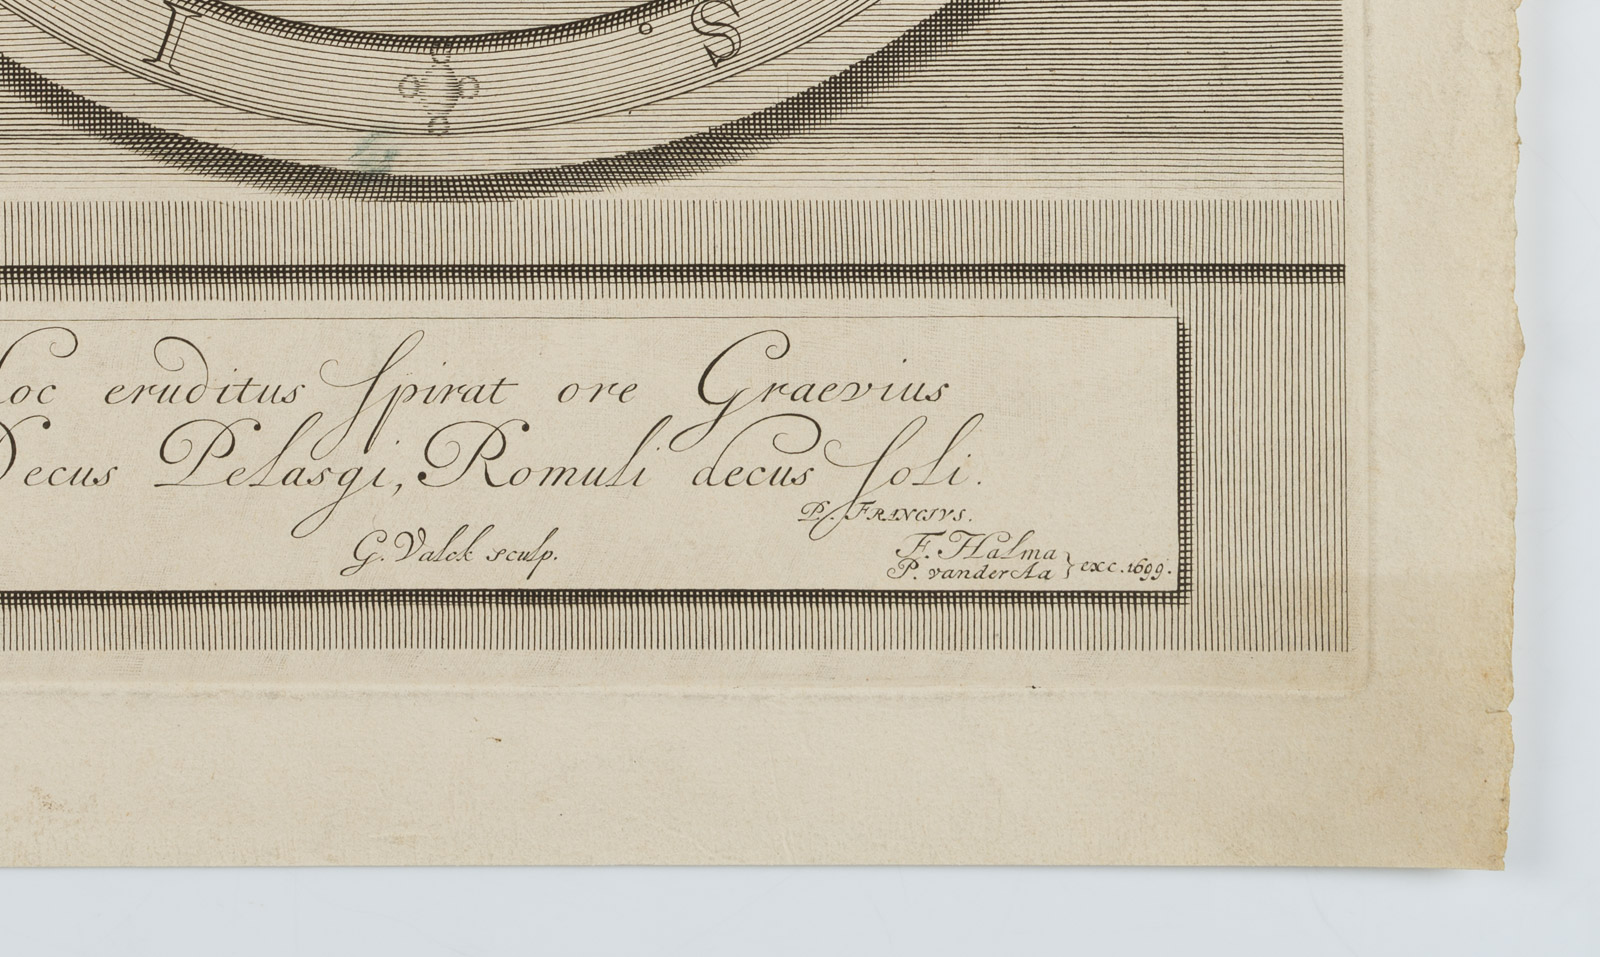 I . S
oc eruditus spirat ore Graevius
Decus Pelasgi, Romuli decus soli.
P. FRANCIVS.
G. Valck sculp.
F. Halma
P. vander Aa } exc. 1699.